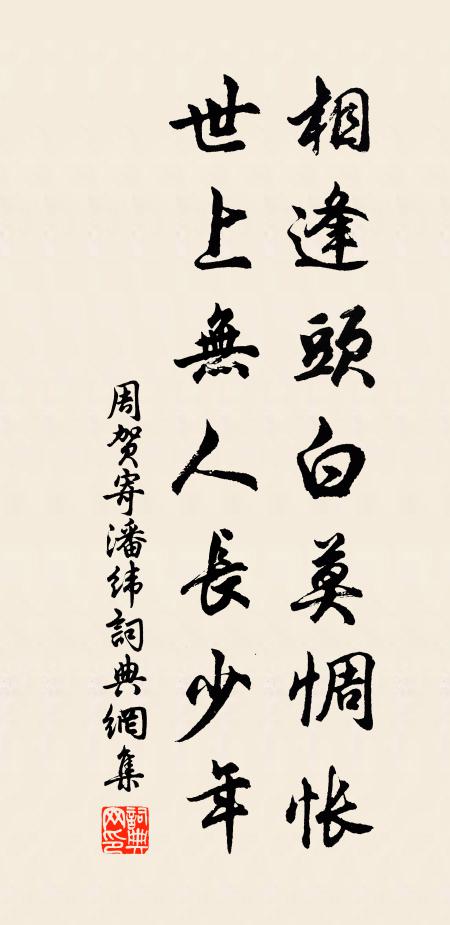 相逢頭白莫惆怅
世上無人長少年
周贺寄潘纬詞典網集
詞典網印